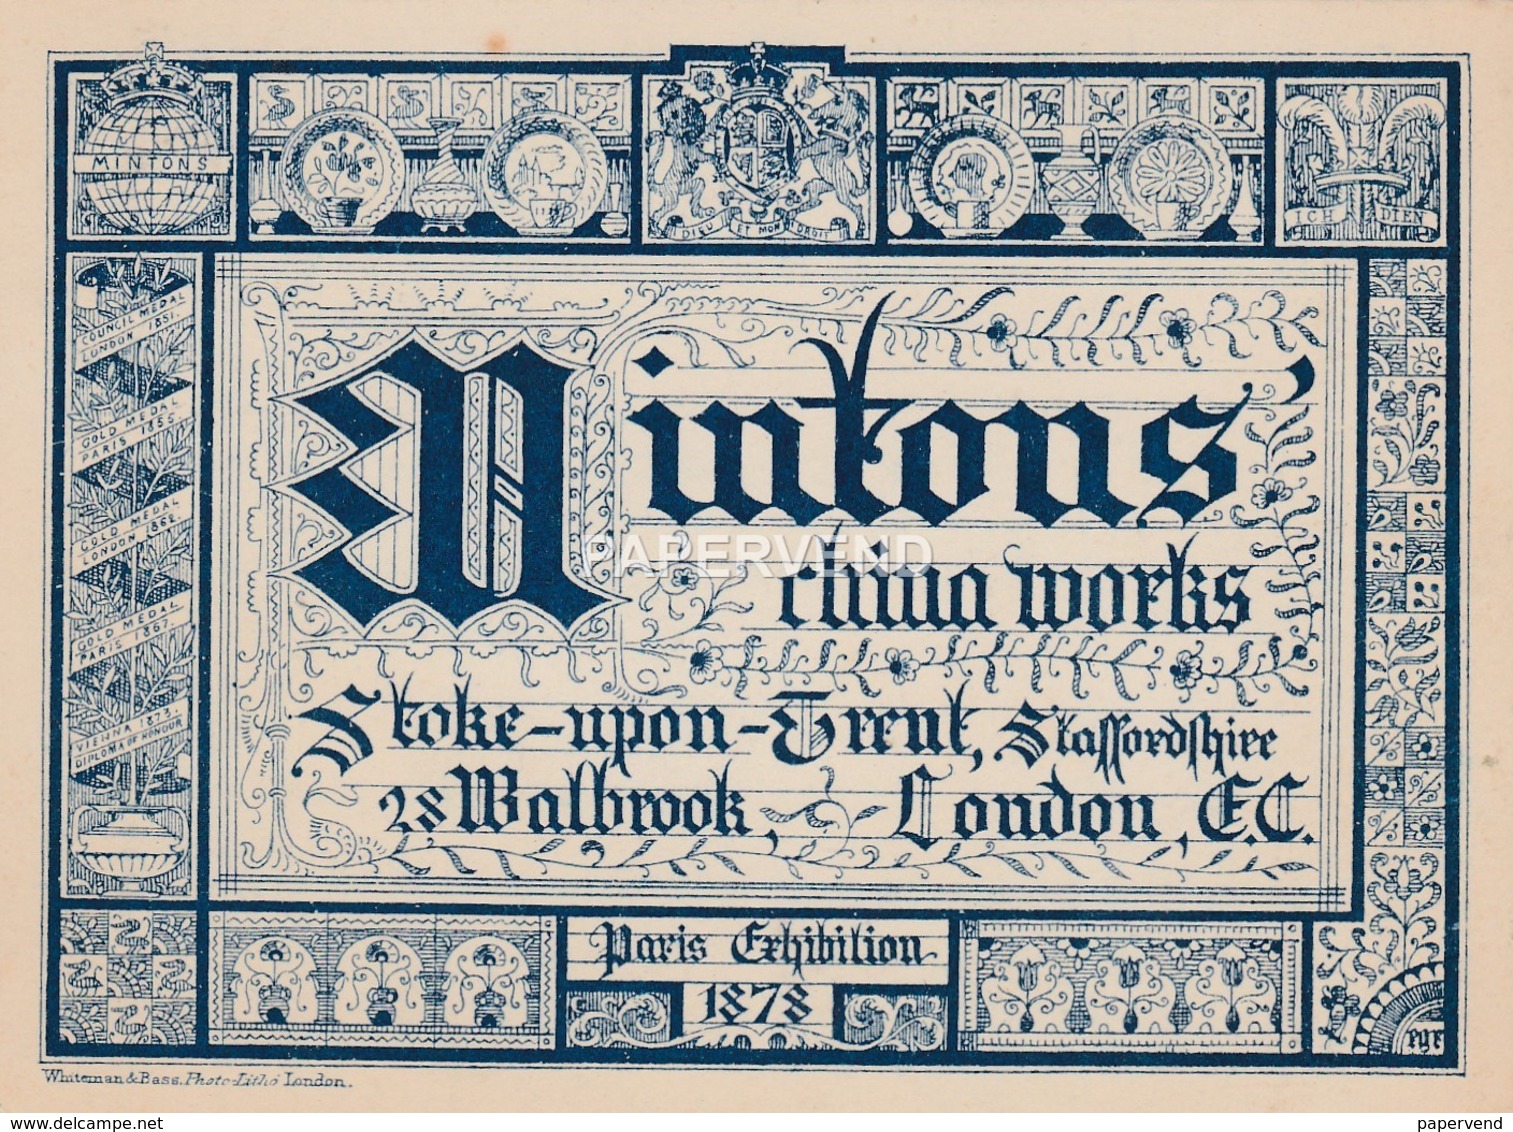 MINTONS
DIEU ET MON DROIT
ICH DIEN
COUNCIL MEDAL
LONDON 1851.
GOLD MEDAL
PARIS 1855.
GOLD MEDAL
LONDON 1862.
GOLD MEDAL
PARIS 1867.
VIENNA 1873.
DIPLOMA OF HONOUR
Mintons'
china works
Stoke-upon-Trent, Staffordshire
28 Walbrook, London, E.C.
Paris Exhibition
1878
Whiteman & Bass. Photo-Litho London.
PAPERVEND
papervend
www.delcampe.net